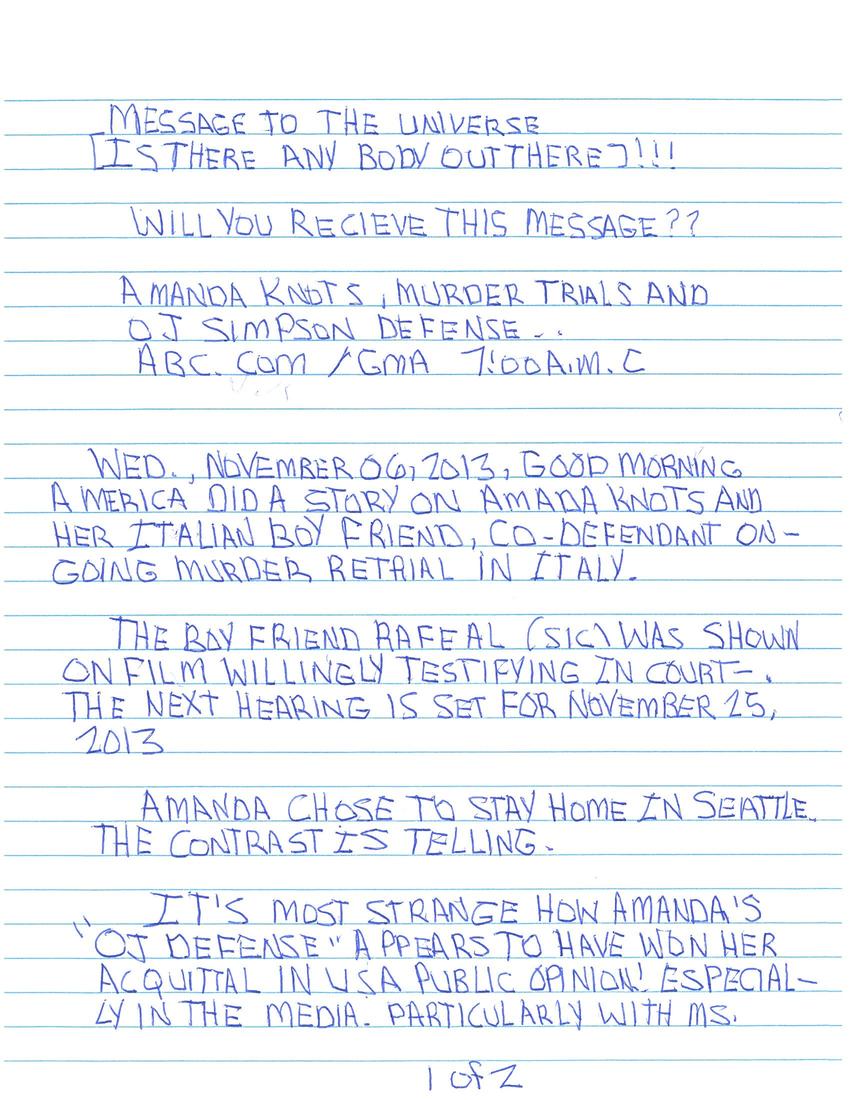 MESSAGE TO THE UNIVERSE
[IS THERE ANY BODY OUT THERE]!!!
WILL YOU RECIEVE THIS MESSAGE??
AMANDA KNOTS, MURDER TRIALS AND
OJ SIMPSON DEFENSE..
ABC.COM /GMA 7:00A.M. C
WED., NOVEMBER 06, 2013, GOOD MORNING
AMERICA DID A STORY ON AMADA KNOTS AND
HER ITALIAN BOY FRIEND, CO-DEFENDANT ON-
GOING MURDER RETRIAL IN ITALY.
THE BOY FRIEND RAFEAL (SIC) WAS SHOWN
ON FILM WILLINGLY TESTIFYING IN COURT-.
THE NEXT HEARING IS SET FOR NOVEMBER 25,
2013
AMANDA CHOSE TO STAY HOME IN SEATTLE.
THE CONTRAST IS TELLING.
IT'S MOST STRANGE HOW AMANDA'S
"OJ DEFENSE" APPEARS TO HAVE WON HER
ACQUITTAL IN USA PUBLIC OPINION! ESPECIAL-
LY IN THE MEDIA. PARTICULARLY WITH MS.
1 of 2